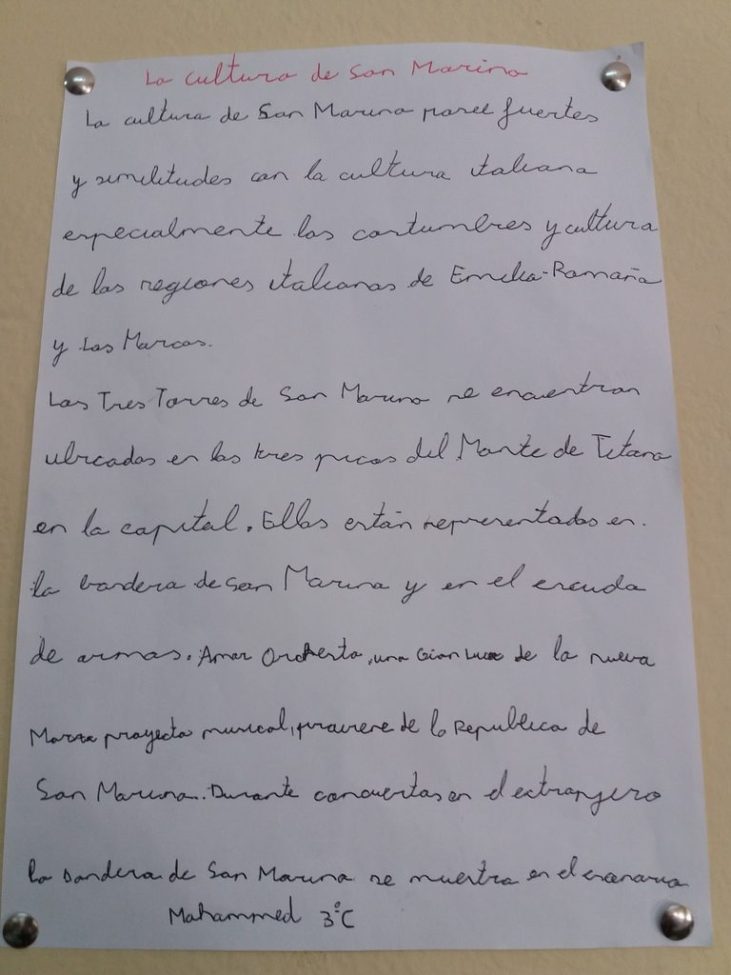 La cultura de San Marino
La cultura de San Marino posee fuertes
y similitudes con la cultura italiana
especialmente las costumbres y cultura
de las regiones italianas de Emilia-Romaña
y Las Marcas.
Las Tres Torres de San Marino se encuentran
ubicadas en los tres picos del Monte de Titano
en la capital. Ellas están representadas en
la bandera de San Marino y en el escudo
de armas. Amar Orchesta, una Gian Luca de la nueva
proyecto musical, proviene de la Republica de
San Marino. Durante conciertos en el extranjero
la bandera de San Marino se muestra en el escenario
Mohammed 3ºC